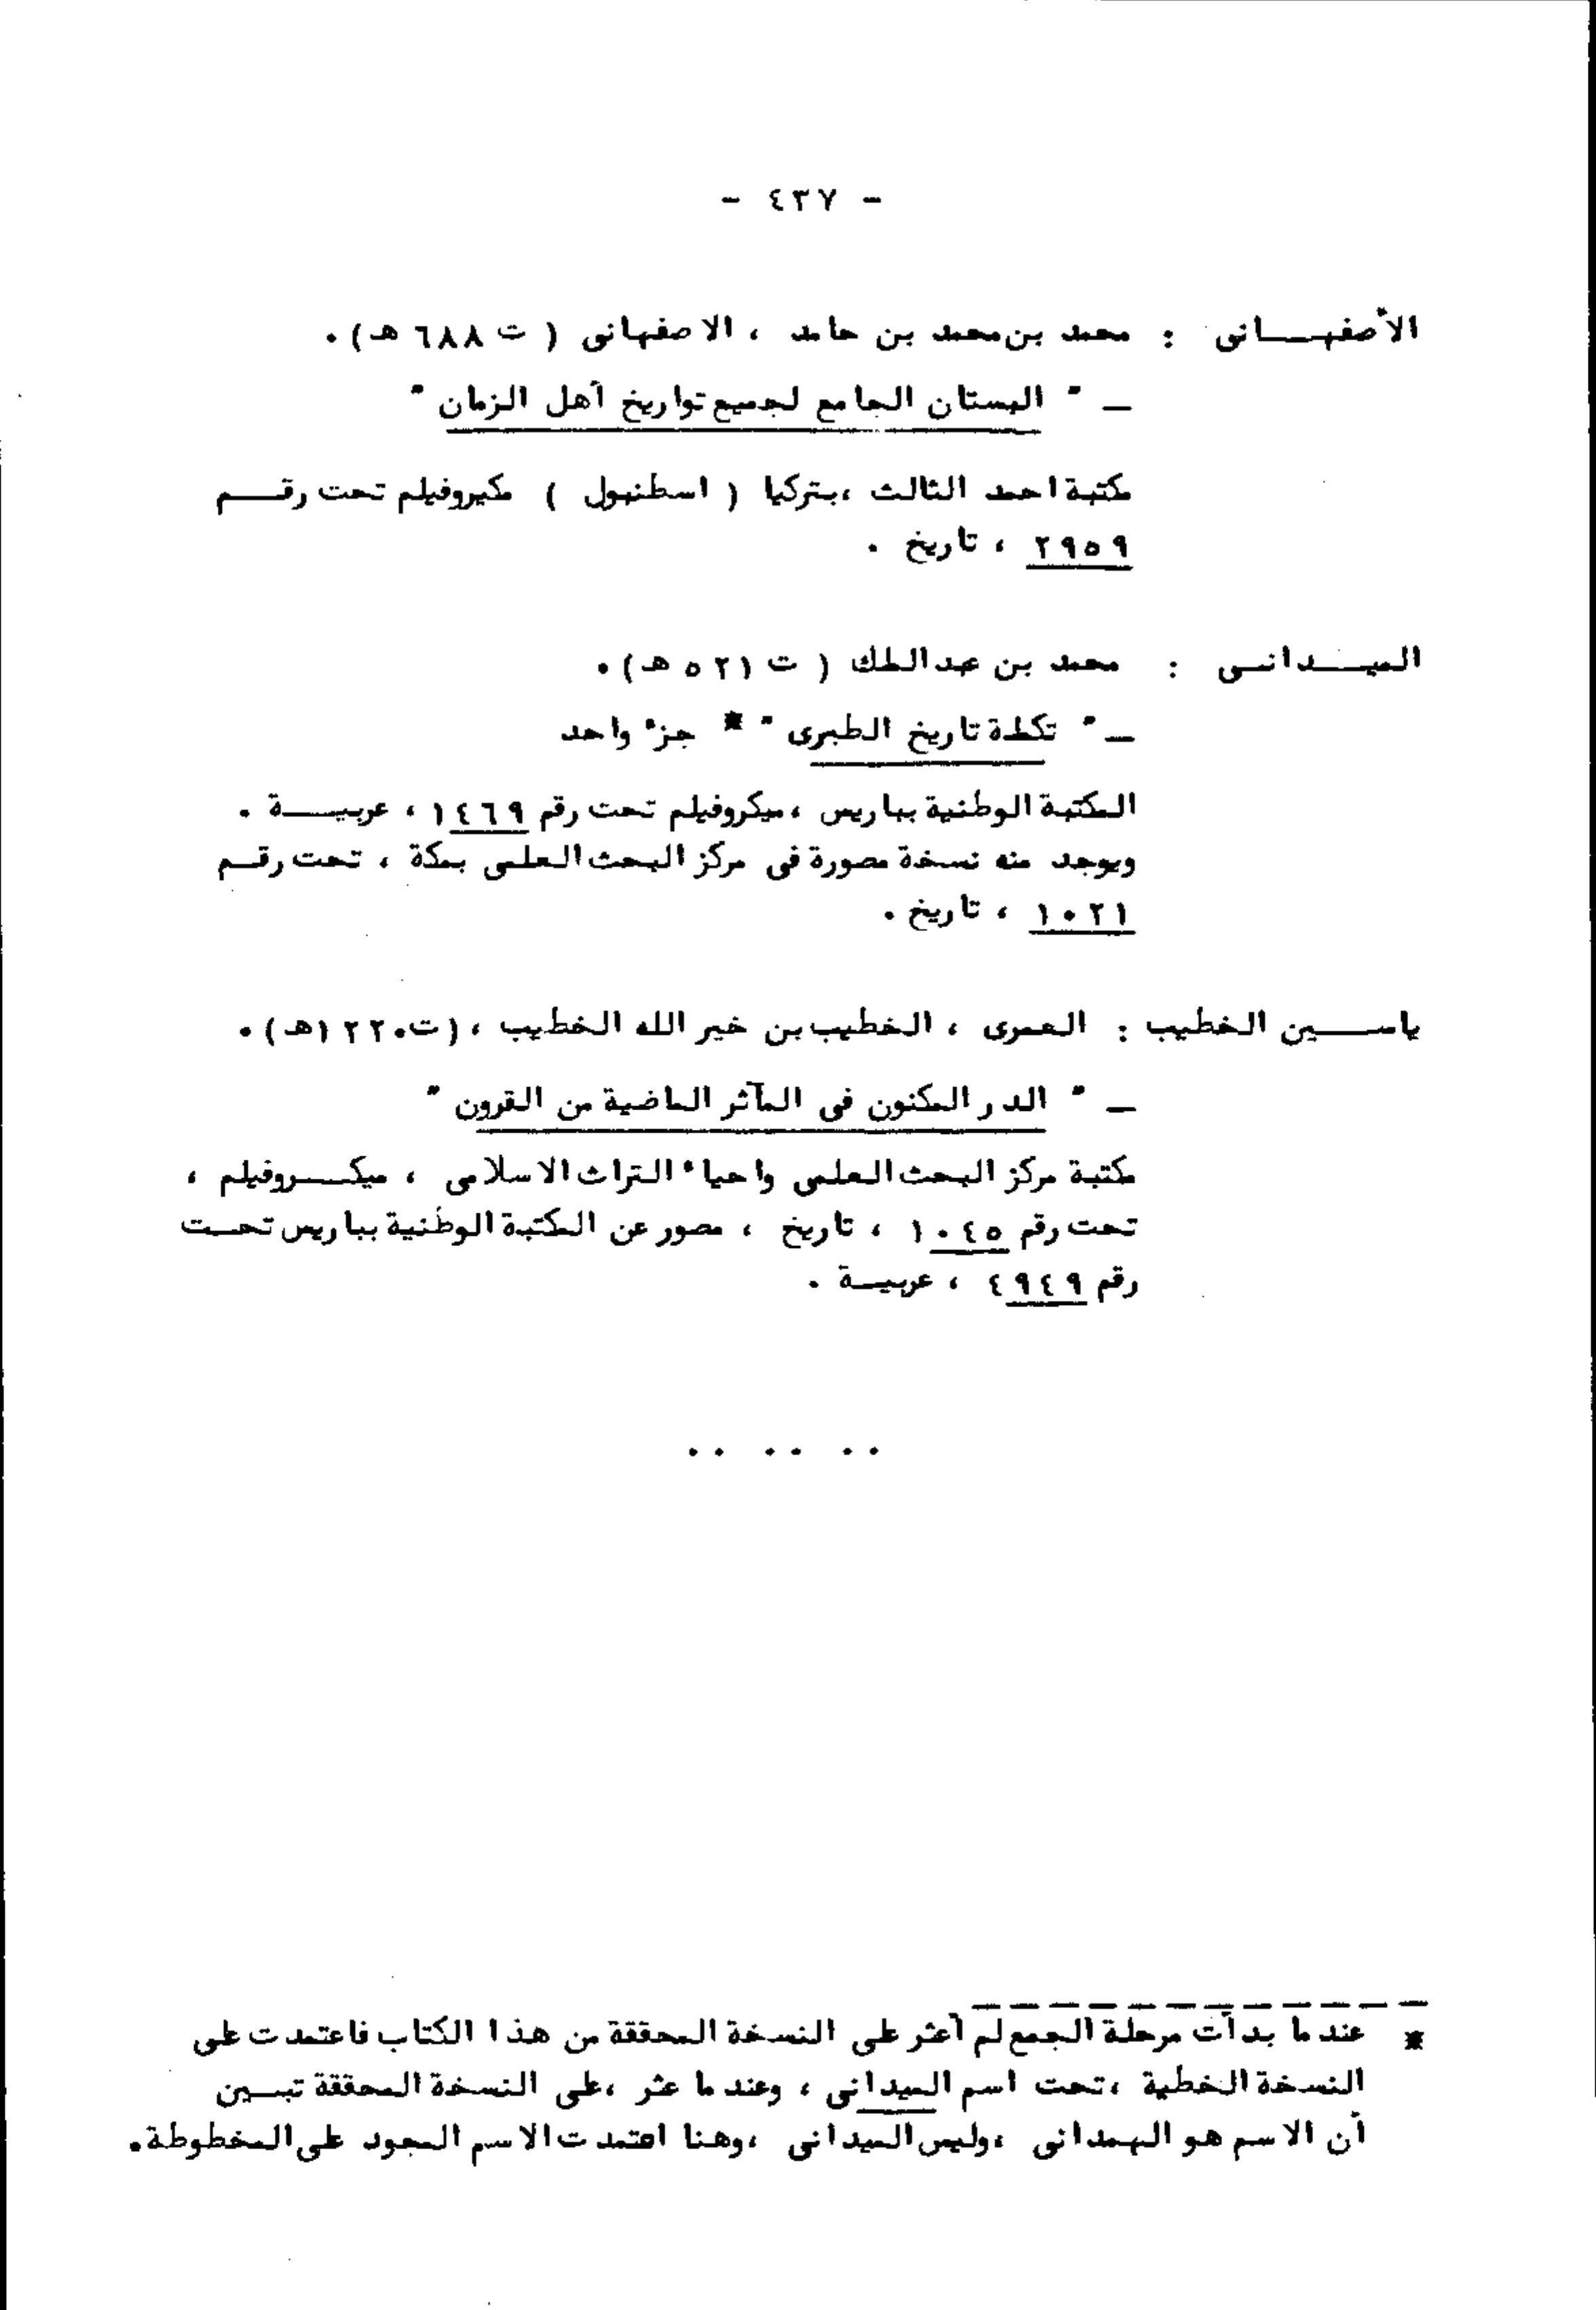 - ٤٣٧ -
الأصفهاني : محمد بن محمد بن حامد ، الاصفهانى ( ت ٦٨٨ هـ ) .
ـ " البستان الجامع لجميع تواريخ أهل الزمان "
مكتبة احمد الثالث ، بتركيا ( اسطنبول ) مكيروفيلم تحت رقم
٢٩٥٩ ، تاريخ .
الميدانى : محمد بن عبد الملك ( ت ٥٢١ هـ ) .
ـ " تكملة تاريخ الطبرى " * جزء واحد
المكتبة الوطنية بباريس ، ميكروفيلم تحت رقم ١٤٦٩ ، عربية .
ويوجد منه نسخة مصورة فى مركز البحث العلمى بمكة ، تحت رقم
١٠٢١ ، تاريخ .
ياسين الخطيب : العمرى ، الخطيب بن خير الله الخطيب ، ( ت ١٢٢٠هـ ) .
ـ " الدر المكنون فى المآثر الماضية من القرون "
مكتبة مركز البحث العلمى واحياء التراث الاسلامى ، ميكروفيلم ،
تحت رقم ١٠٤٥ ، تاريخ ، مصور عن المكتبة الوطنية بباريس تحت
رقم ٤٩٤٩ ، عربية .
.. .. ..
* عندما بدأت مرحلة الجمع لم أعثر على النسخة المحققة من هذا الكتاب فاعتمدت على
النسخة الخطية ، تحت اسم الميدانى ، وعندما عثر ، على النسخة المحققة تبين
أن الاسم هو الهمدانى ، وليس الميدانى ، وهنا اعتمدت الاسم المجود على المخطوطة .